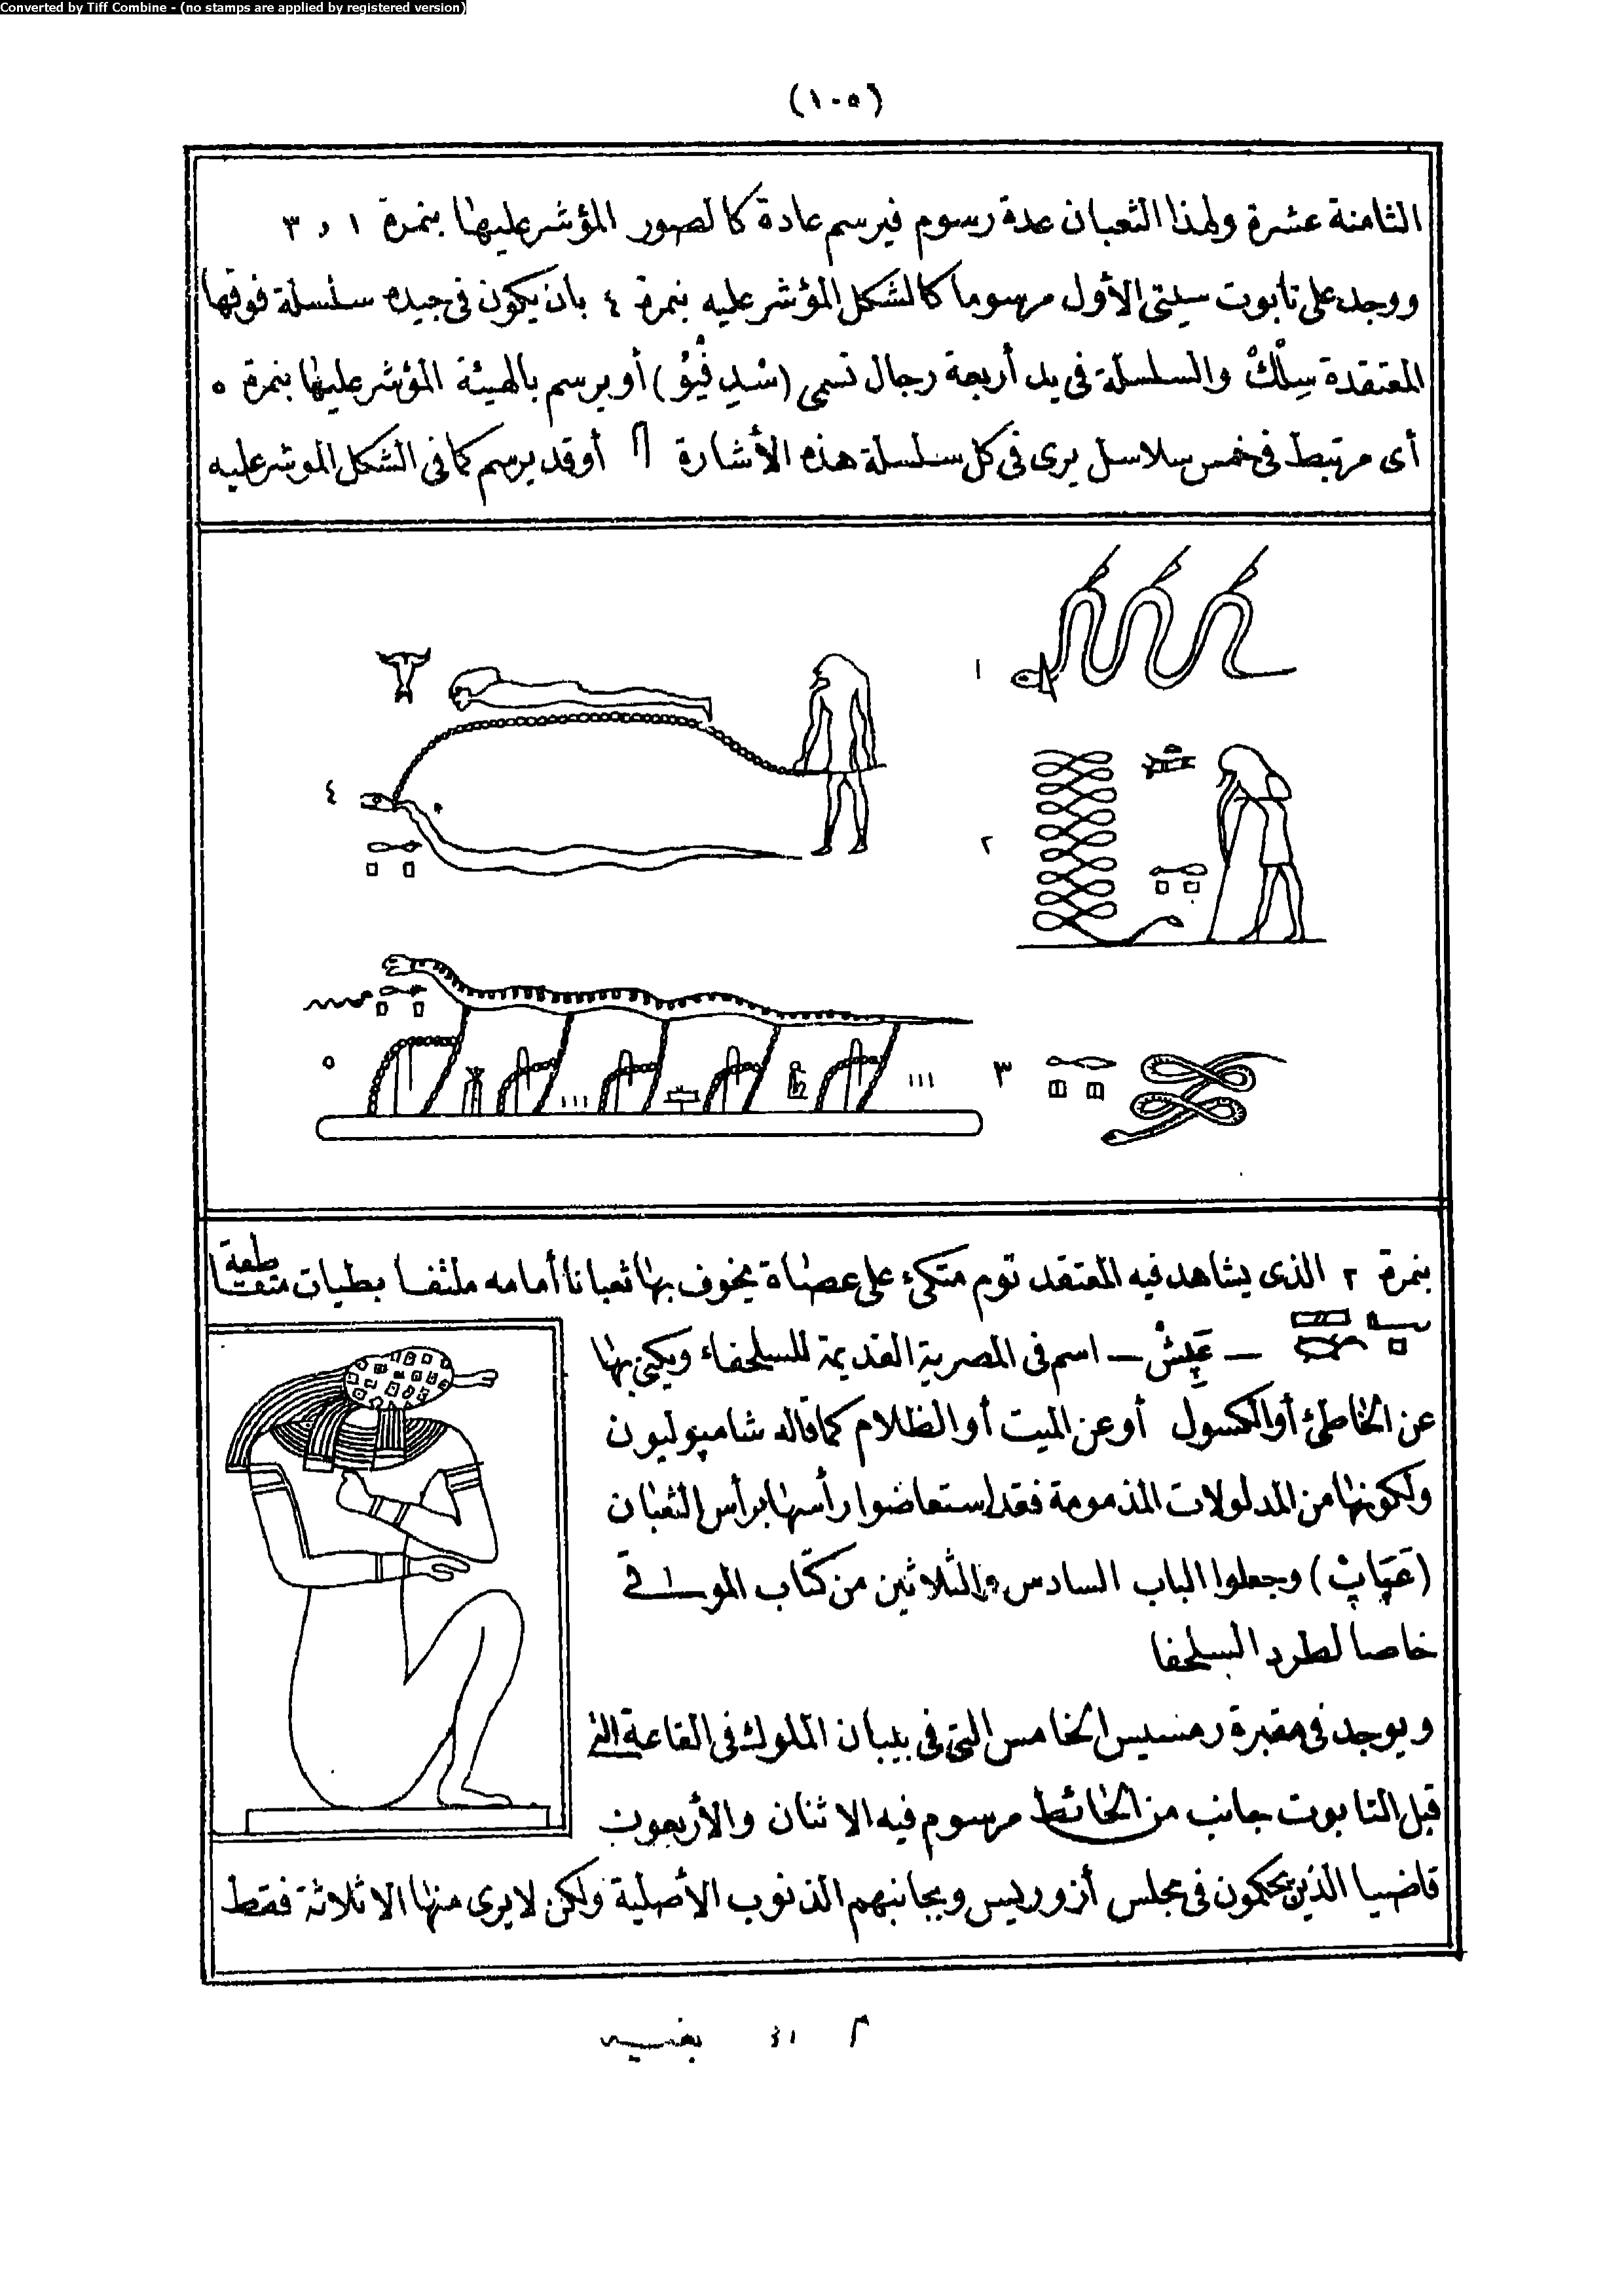 Converted by Tiff Combine - (no stamps are applied by registered version)
(١٠٥)
الثامنة عشرة ولهذا الثعبان عدة رسوم فيرسم عادة كالصور المؤشر عليها بنمرة ١ و ٣
ووجد على تابوت سيتى الأول مرسوما كالشكل المؤشر عليه بنمرة ٤ بان يكون فى جيده سلسلة فوقها
المعتقدة سِلْكْ والسلسلة فى يد أربعة رجال تسمى (سْدِ فْيُو) أو يرسم بالهيئة المؤشر عليها بنمرة ٥
أى مرتبط فى خمس سلاسل يرى فى كل سلسلة هذه الأشارة أو قد يرسم كما فى الشكل الموشر عليه
١
٤
٢
٥
٣
بنمرة ٢ الذى يشاهد فيه المعتقد توم متكىء على عصاة يخوف بها ثعبانا أمامه ملتفا بطيات متقاطعة
— عَپِشْ — اسم فى المصرية القديمة للسلحفاء ويكنى بها
عن الخاطئ أو الكسول أو عن الميت أو الظلام كما قاله شامپوليون
ولكونها من المدلولات المذمومة فقد استعاضوا رأسها برأس الثعبان
(عَپَاپْ) وجعلوا الباب السادس والثلاثين من كتاب الموتى
خاصا لطرد السلحفا
ويوجد فى مقبرة رمسيس الخامس التى فى بيبان الملوك فى القاعة التى
قبل التابوت جانب من الحائط مرسوم فيه الاثنان والأربعون
قاضيا الذين يحكمون فى مجلس أزوريس وبجانبهم الذنوب الأصلية ولكن لا يرى منها الا ثلاثة فقط
م ١٤ بغيـه